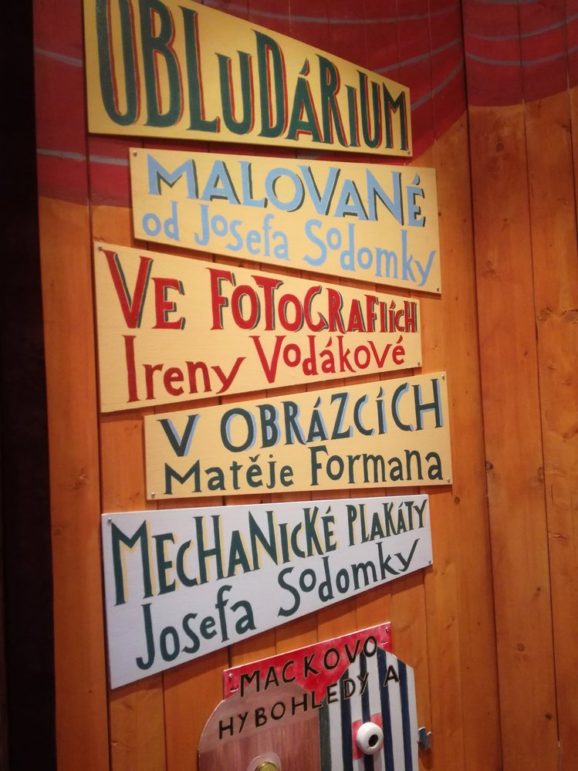 OBLUDÁRIUM
MALOVANÉ
od Josefa Sodomky
VE FOTOGRAFIÍCH
Ireny Vodákové
V OBRÁZCÍCH
Matěje Formana
MECHANICKÉ PLAKÁTY
Josefa Sodomky
MACKOVO
HYBOHLEDY A